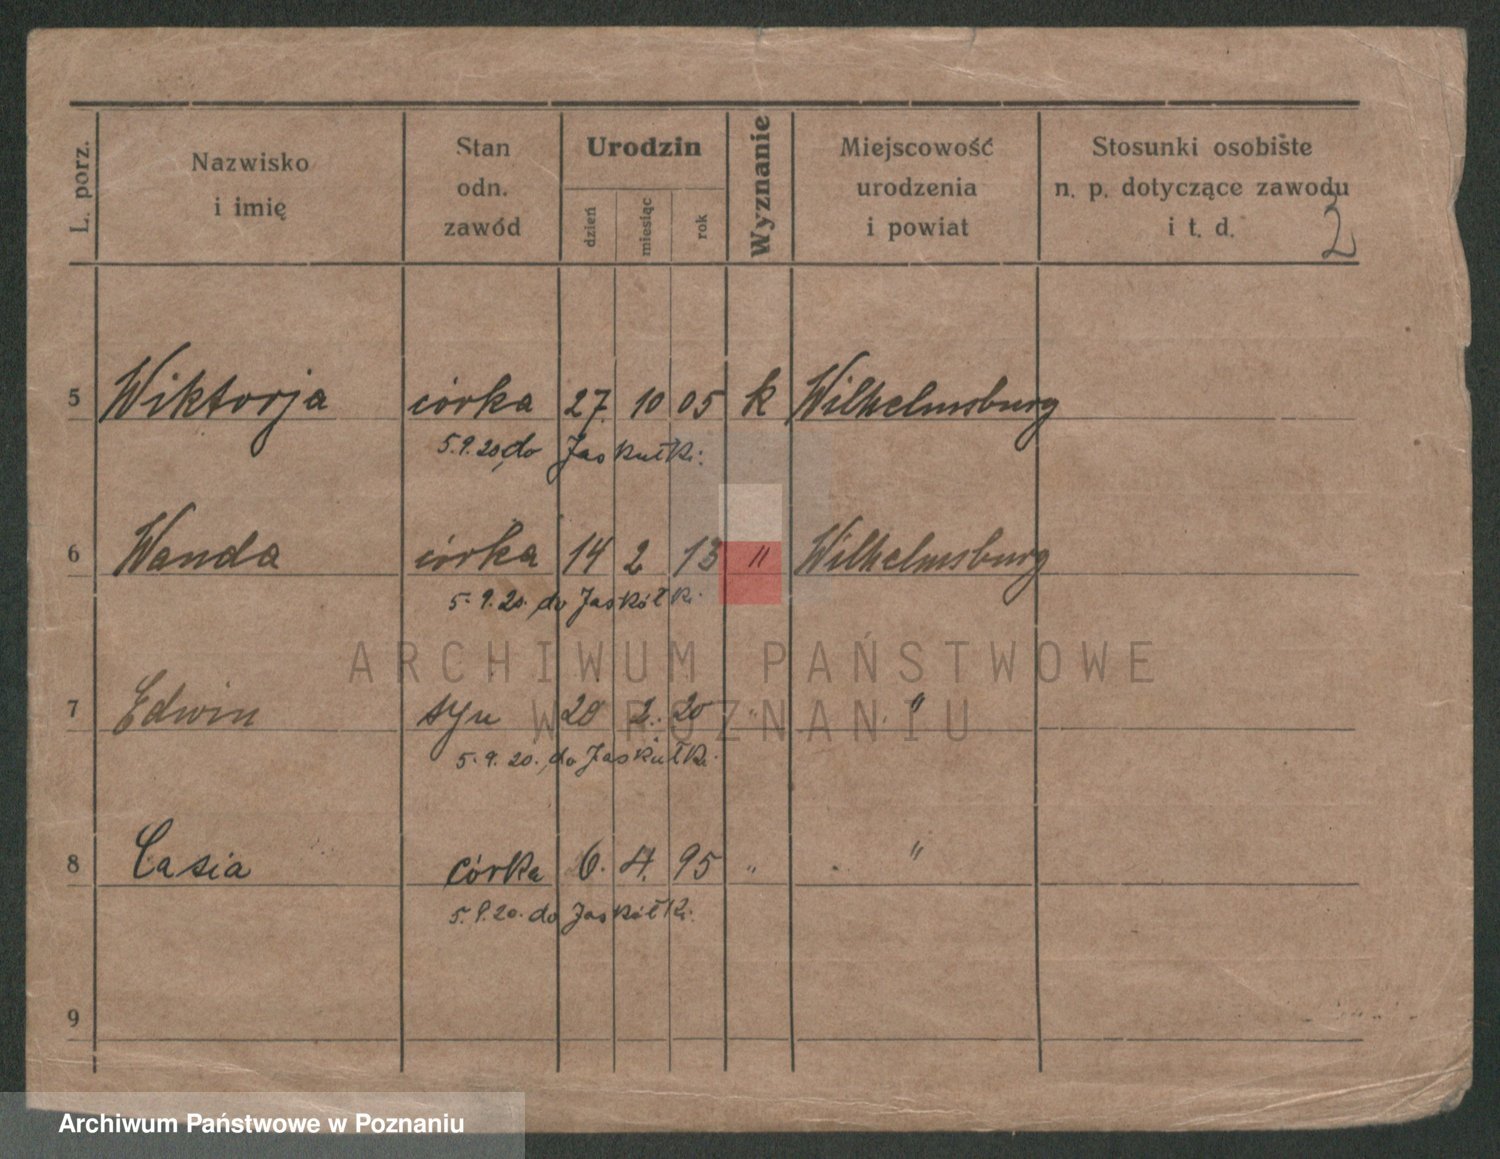 L. porz.
Nazwisko
i imię
Stan
odn.
zawód
Urodzin
dzień
miesiąc
rok
Wyznanie
Miejscowość
urodzenia
i powiat
Stosunki osobiste
n. p. dotyczące zawodu
i t. d.
2
5 Wiktorja córka 27. 10 05 k Wilhelmsburg
5.9.20 do Jaskułki.
6 Wanda córka 14 2 13 " Wilhelmsburg
5.9.20. do Jaskółki.
ARCHIWUM PAŃSTWOWE
W POZNANIU
7 Edwin syn 20 2. 20 " "
5.9.20. do Jaskułki.
8 Casia córka 6. 4. 95 " "
5.9.20. do Jaskółki.
9
Archiwum Państwowe w Poznaniu